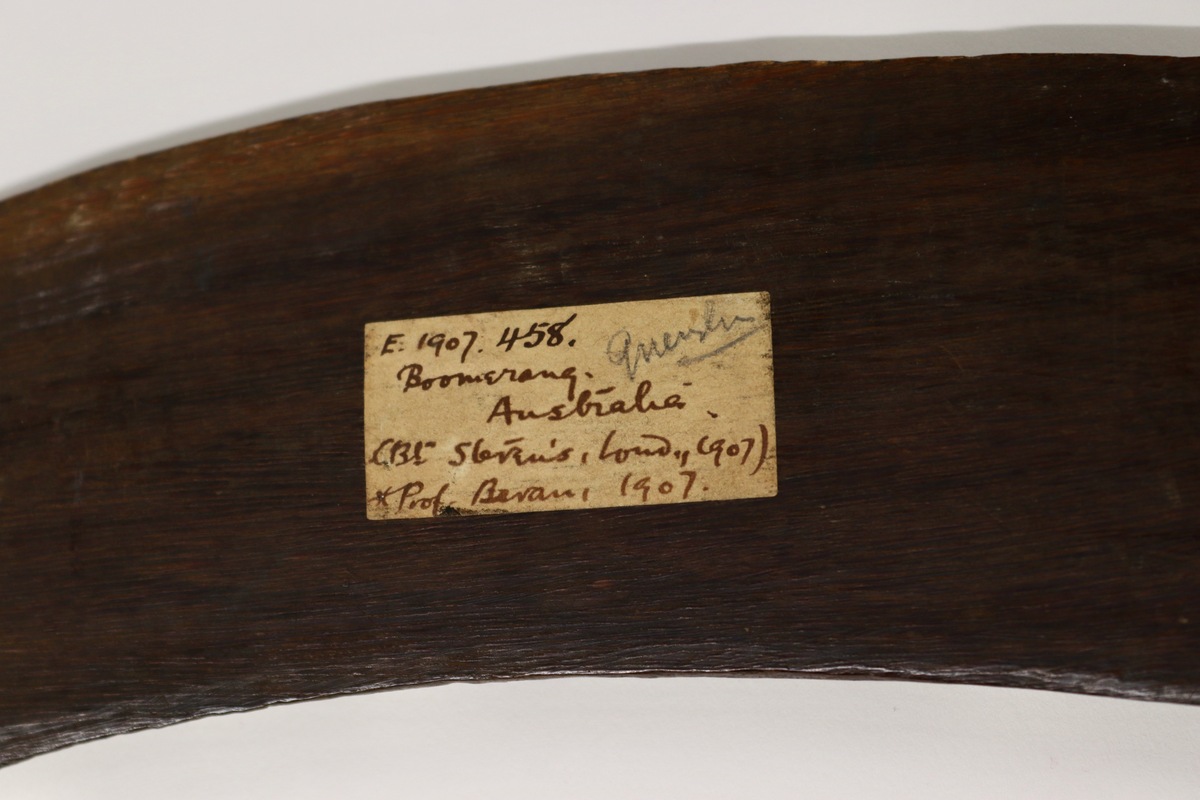 E. 1907. 458.
Boomerang.
Australia.
(Bt Stevens, Lond., 1907)
* Prof. Bevan, 1907.